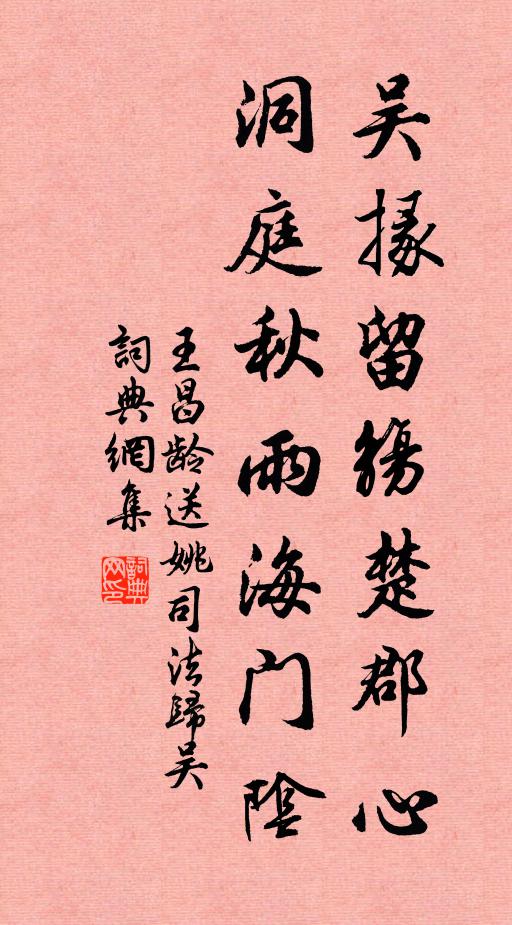 吴掾留觞楚郡心
洞庭秋雨海门阴
王昌龄送姚司法歸吴
詞典網集
詞典网印